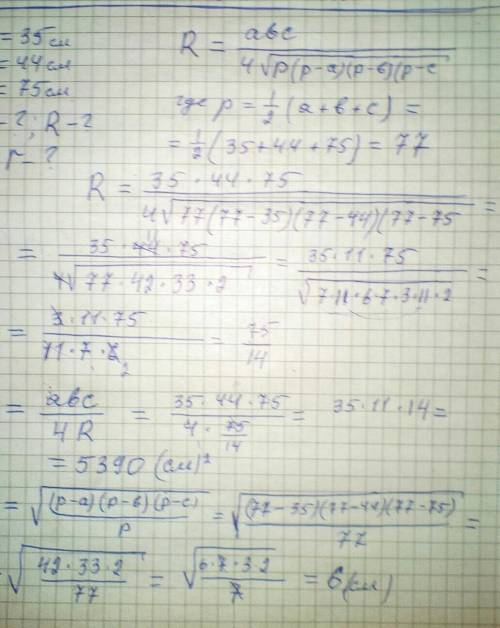 = 35 см
= 44 см
= 75 см
= ?; R - ?
r - ?
R = abc / 4√p(p-a)(p-в)(p-c
где p = 1/2 (a+в+c) =
= 1/2 (35+44+75) = 77
R = 35 · 44 · 75 / 4√77(77-35)(77-44)(77-75 =
= 35 · 44 · 75 / 4√77 · 42 · 33 · 2 = 35 · 11 · 75 / √7·11·6·7·3·11·2 =
= · 11 · 75 / 11 · 7 · 2 = 75 / 14
= abc / 4R = 35 · 44 · 75 / 4 · 75/14 = 35 · 11 · 14 =
= 5390 (см)²
= √(p-a)(p-в)(p-c) / p = √(77-35)(77-44)(77-75) / 77 =
√42 · 33 · 2 / 77 = √6 · 7 · 3 · 2 / 7 = 6 (см)